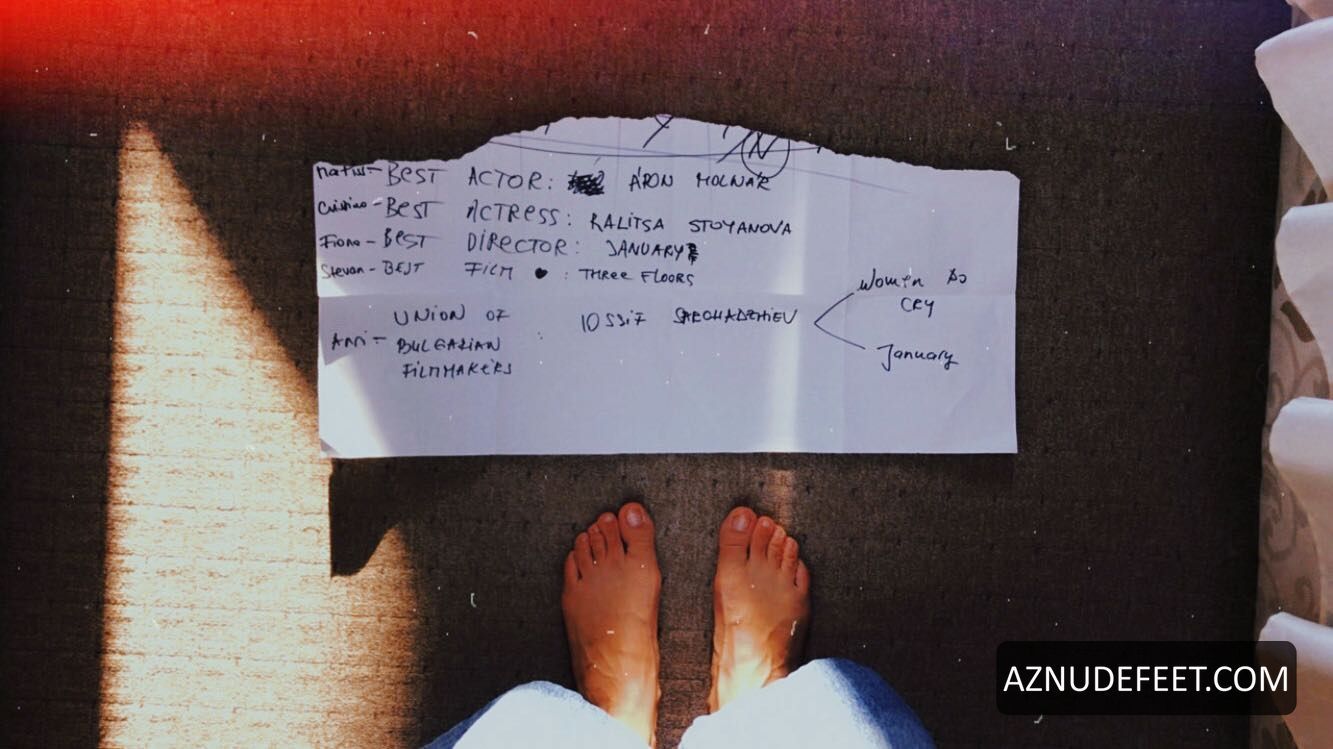 BEST ACTOR: ÁRON MOLNÁR
BEST ACTRESS: RALITSA STOYANOVA
Fiona - BEST DIRECTOR: JANUARY
Stevan - BEST FILM : THREE FLOORS
Women Do
CRY
UNION OF
BULGARIAN : IOSSIF
FILMMAKERS
January
AZNUDEFEET.COM